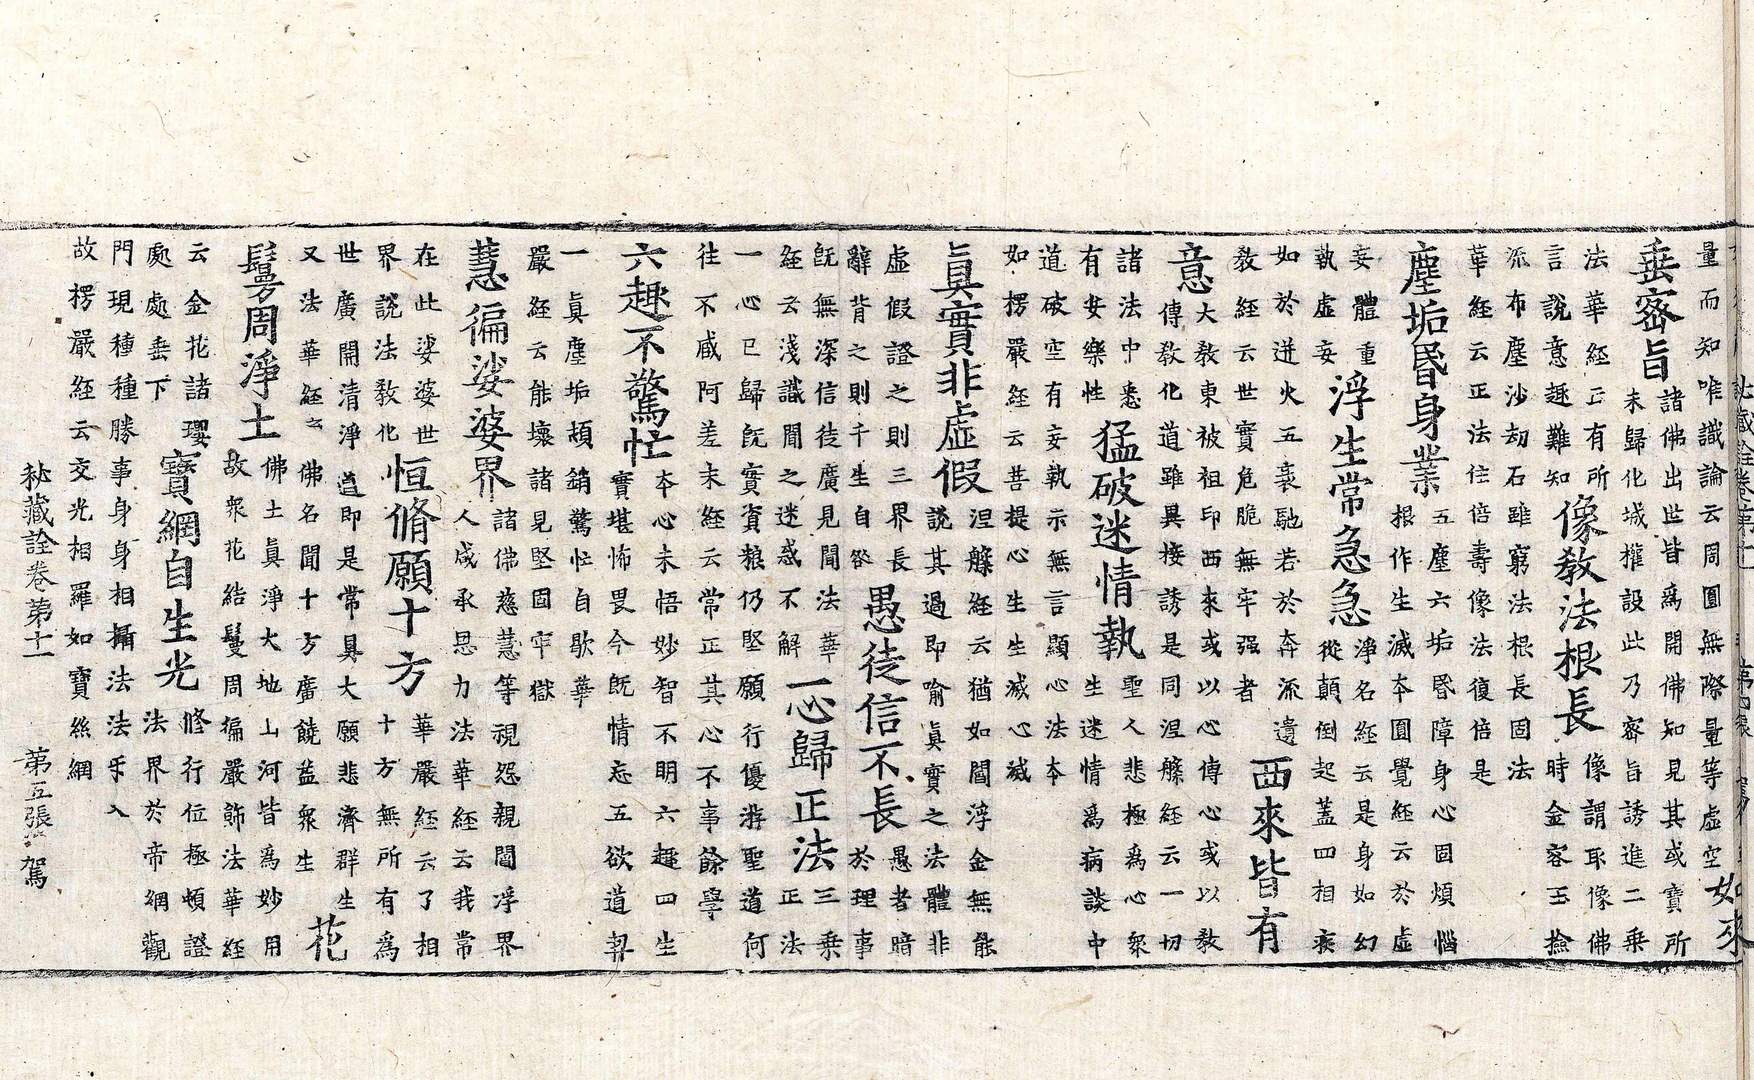 量而知唯識論云周圓無際量等虛空
如來
垂密旨
諸佛出世皆爲開佛知見其或寶所
未歸化城權設此乃密旨誘進二乘
法華經云有所
言說意趣難知
像教法根長
像謂耳像佛
時金容玉撿
流布塵沙劫石雖窮法根長固法
華經云正法住倍壽像法復倍是
塵垢昏身業
五塵六垢昏障身心固煩惱
根作生滅本圓覺經云於虛
妄體重
執虛妄
浮生常急急
淨名經云是身如幻
從顛倒起蓋四相疾
如於迸火五衰馳若於奔流遺
教經云世實危脆無牢强者
西來皆有
意
大教東被祖印西來或以心傳心或以教
傳教化道雖異接誘是同涅槃經云一切
諸法中悉
有安樂性
猛破迷情執
聖人悲極爲心衆
生迷情爲病談中
道破空有妄執示無言顯心法本
如楞嚴經云菩提心生生滅心滅
眞實非虛假
涅槃經云猶如閻浮金無能
說其過即喻眞實之法體非
虛假證之則三界長
辭背之則千生自咎
愚徒信不長
愚者暗
於理事
既無深信徒廣見聞法華
經云淺識聞之迷惑不解
一心歸正法
三乘
正法
一心已歸既實資粮仍堅願行優游聖道何
往不感阿差末經云常正其心不事餘學
六趣不驚忙
本心未悟妙智不明六趣四生
實堪怖畏今既情忘五欲道契
一眞塵垢頓銷驚忙自歇華
嚴經云能壞諸見堅固牢獄
慧徧娑婆界
諸佛慈慧等視怨親閻浮界
人咸承恩力法華經云我常
在此娑婆世
界說法教化
恒脩願十方
華嚴經云了相
十方無所有爲
世廣開清淨道即是常具大願悲濟群生
又法華經云佛名聞十方廣饒益衆生
花
鬘周淨土
佛土眞淨大地山河皆爲妙用
故衆花結鬘周徧嚴飾法華經
云金花諸瓔
處處垂下
寶網自生光
修行位極頓證
法界於帝網觀
門現種種勝事身身相攝法法牙入
故楞嚴經云交光相羅如寶絲網
秘藏詮卷第十一 第五張 駕